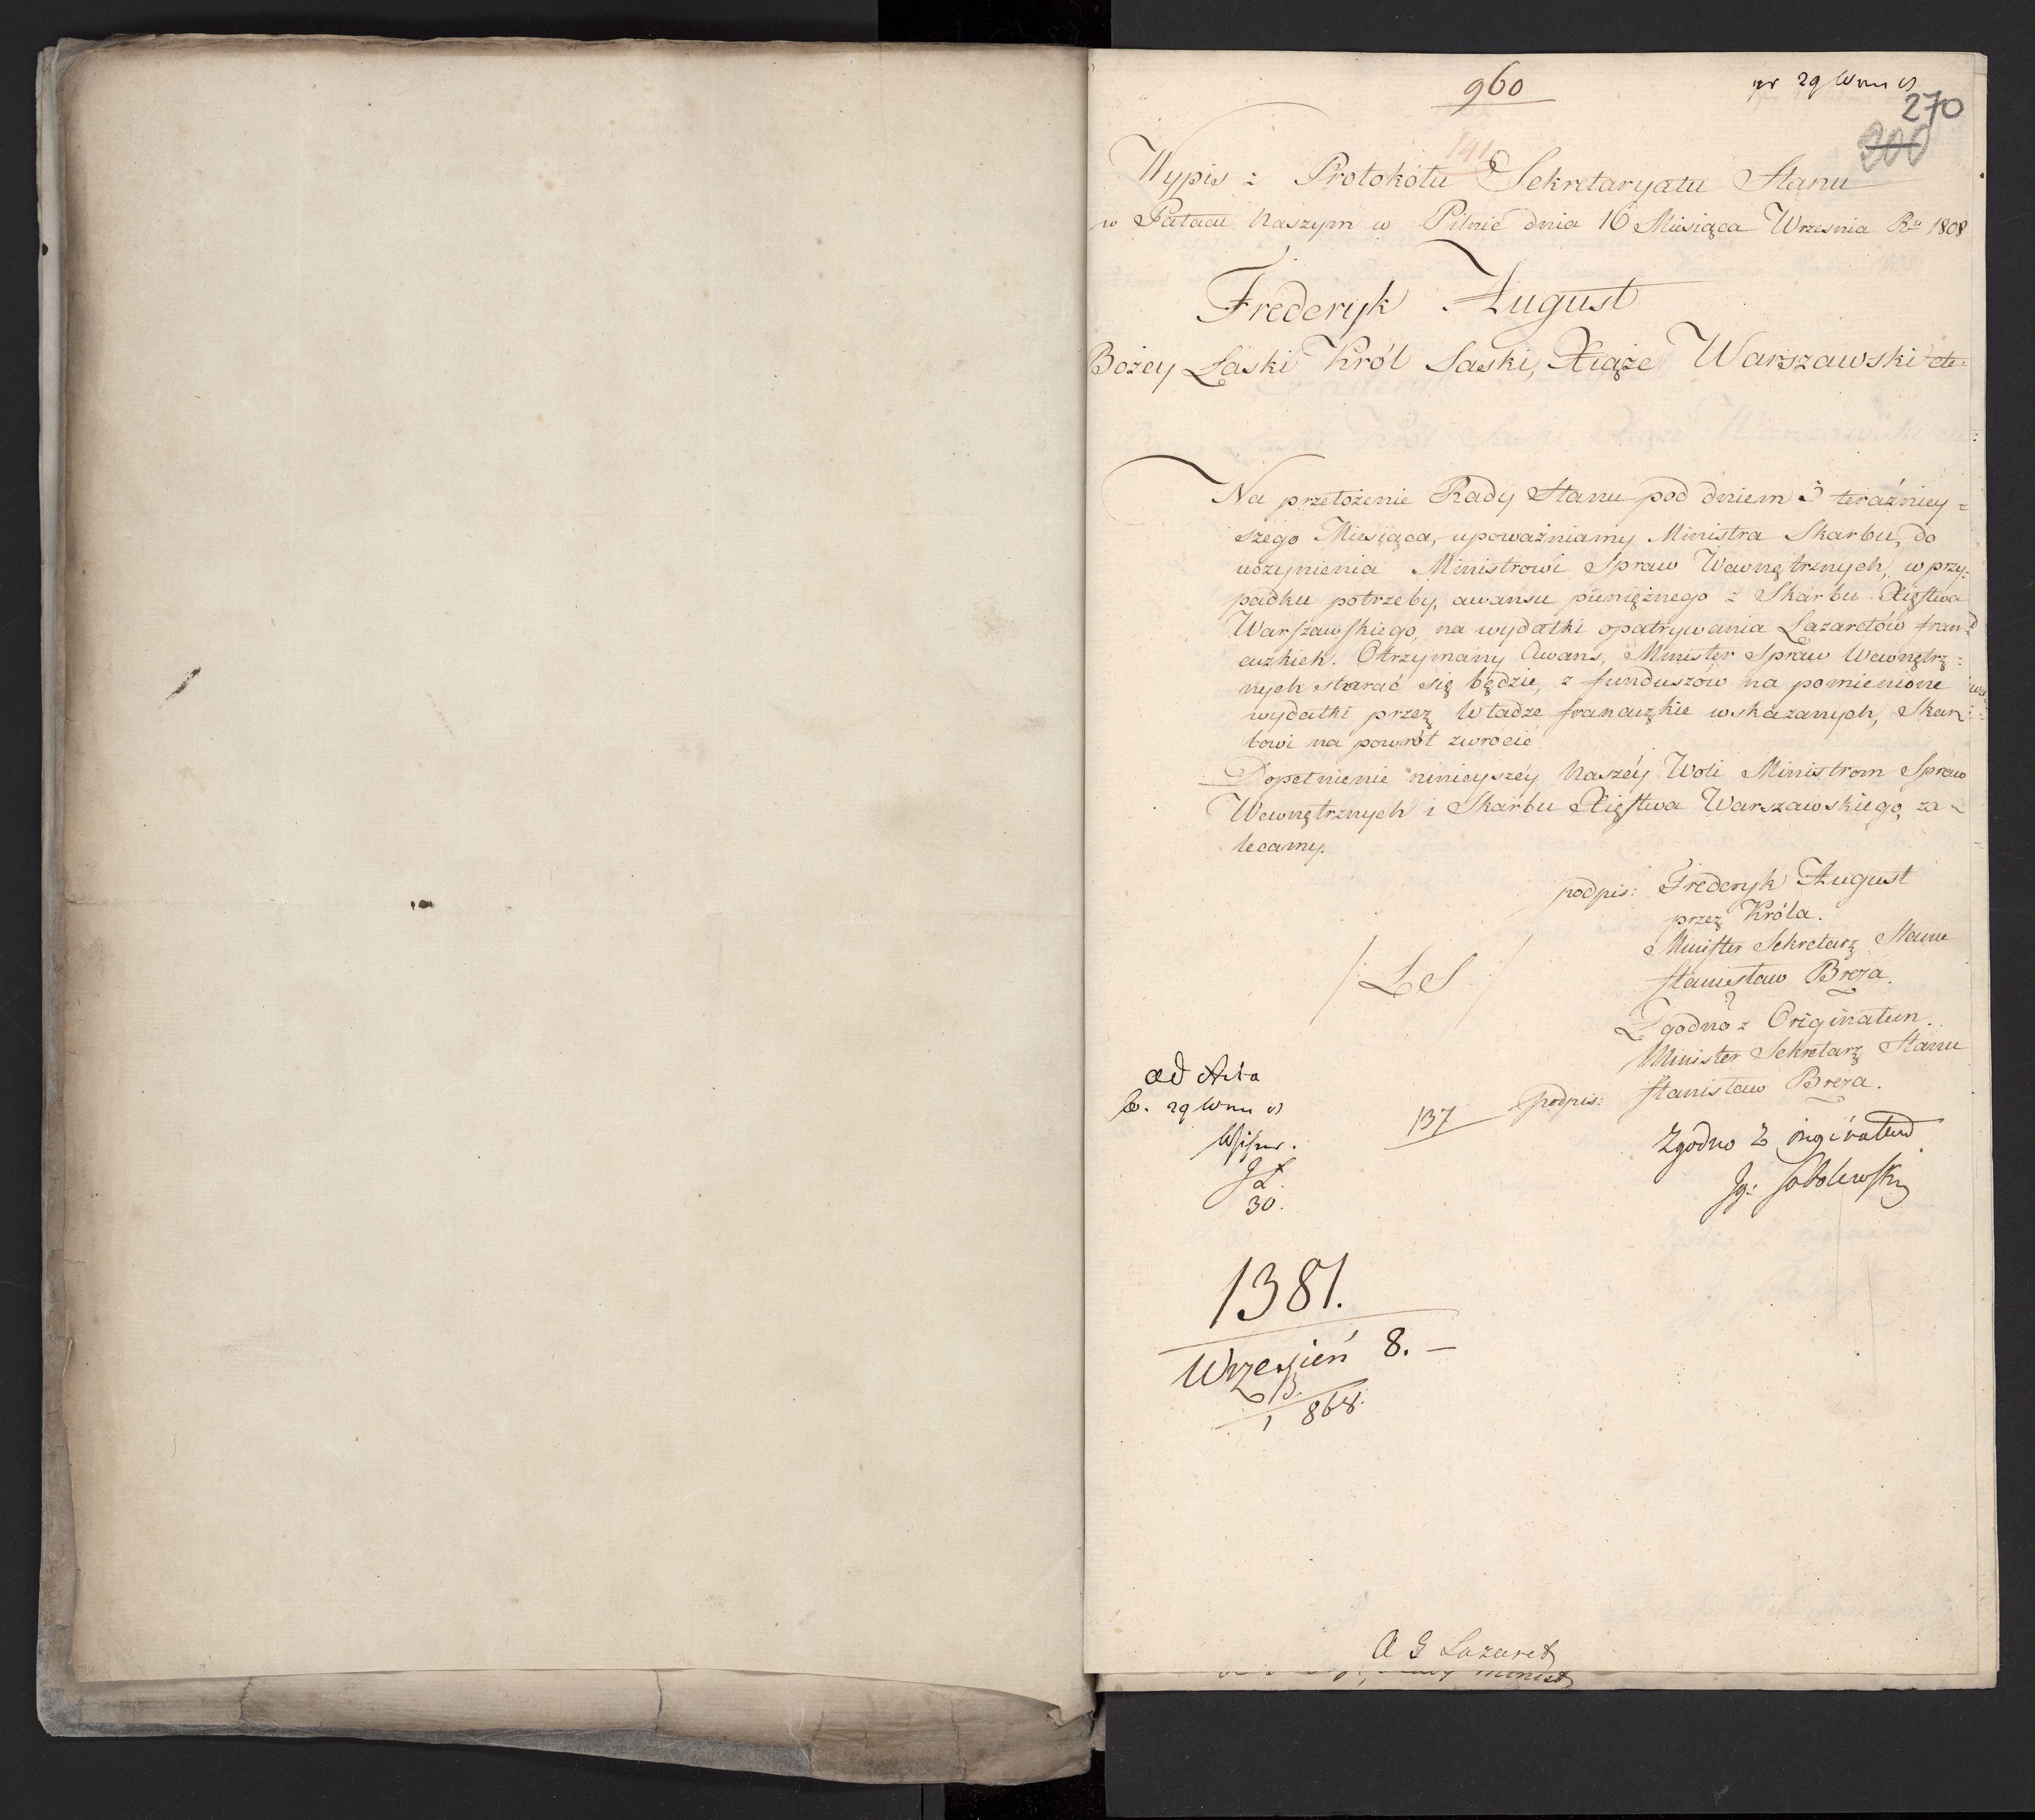 960
pr 29
270
200
141
Wypis z Protokółu Sekretaryatu Stanu
w Pałacu Naszym w Pilnic dnia 16 Miesiąca Wrzesnia Ru 1808
Frederyk August
Bożey Łaski Król Saski, Xiąże Warszawski etc:
Na przełożenie Rady Stanu pod dniem 3 teraźniey=
szego Miesiąca, upoważniamy Ministra Skarbu, do
uczynienia Ministrowi Spraw Wewnętrznych, w przy=
padku potrzeby, awansu pieniężnego z Skarbu Xięstwa
Warszawskiego, na wydatki opatrywania Lazaretów fran=
cuzkich. Otrzymany Awans, Minister Spraw Wewnętrz=
nych starać się będzie, z funduszów na pomienione
wydatki przez Władze francuzkie wskazanych, Skar=
bowi na powrót zwrócić.
Dopełnienie ninieyszéy Naszéy Woli Ministrom Spraw
Wewnętrznych i Skarbu Xięstwa Warszawskiego, za=
lecamy.
podpis: Frederyk August
przez Króla.
Minister Sekretarz Stanu
Stanisław Breza.
/: L S :/
Zgodno z Originałem.
Minister Sekretarz Stanu
podpis: Stanisław Breza.
ad Acta
29
137
30.
Zgodno z originałem
Ig: Sobolewski
1381.
Wrzesień 8. –
B.
1 868.
A G Lazaret